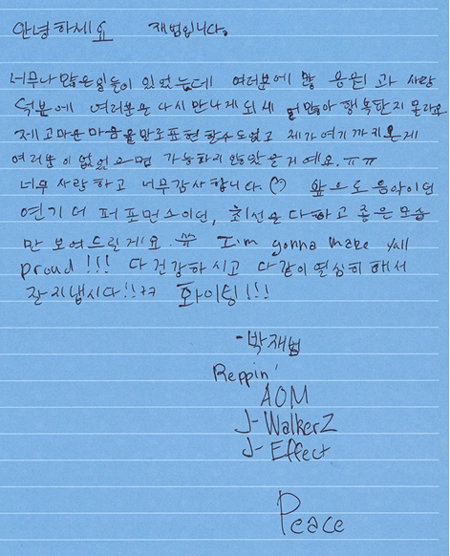 안녕하세요 재범입니다.
너무나 많은일들이 있었는데 여러분에 많 응원과 사랑
덕분에 여러분을 다시 만나게 되서 얼마나 행복한지 몰라요
제 고마운 마음을 말로 표현 할수도없고 제가 여기 까지 온게
여러분이 없었으면 가능하지 않았을거예요. ㅠㅠ
너무 사랑하고 너무감사합니다.♡ 앞으로 음악이던
연기던 퍼포먼스이던, 최선을 다하고 좋은모습
만 보여드릴게요. ^^ I'm gonna make yall
proud!!! 다 건강하시고 다같이 열심히 해서
잘지냅시다!!ㅋㅋ 화이팅!!!
-박재범
Reppin'
AOM
J-WalkerZ
J-Effect
Peace